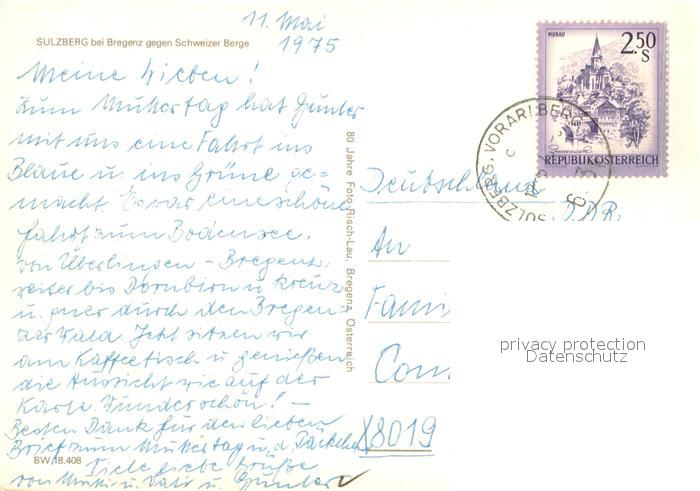 11. Mai
1975
SULZBERG bei Bregenz gegen Schweizer Berge
Meine Lieben!
Zum Muttertag hat Günter
mit uns eine Fahrt ins
Blaue u. ins Grüne ge-
macht. Es war eine schöne
Fahrt zum Bodensee,
von Überlingen - Bregenz,
weiter bis Dornbirn u. kreuz
u. quer durch den Bregen-
zer Wald. Jetzt sitzen wir
am Kaffeetisch u. genießen
die Aussicht wie auf der
Karte. Wunderschön! -
Besten Dank für den lieben
Brief zum Muttertag u. d. Päckchen
Viele liebe Grüße
von Mutti u. Vati u. Günter
BW 18.408
80 Jahre Foto Risch-Lau, Bregenz, Österreich
MURAU
2.50
S
REPUBLIK ÖSTERREICH
SULZBERG, VORARLBERG
Deutschland
DDR
An
Fami
X8019
privacy protection
Datenschutz